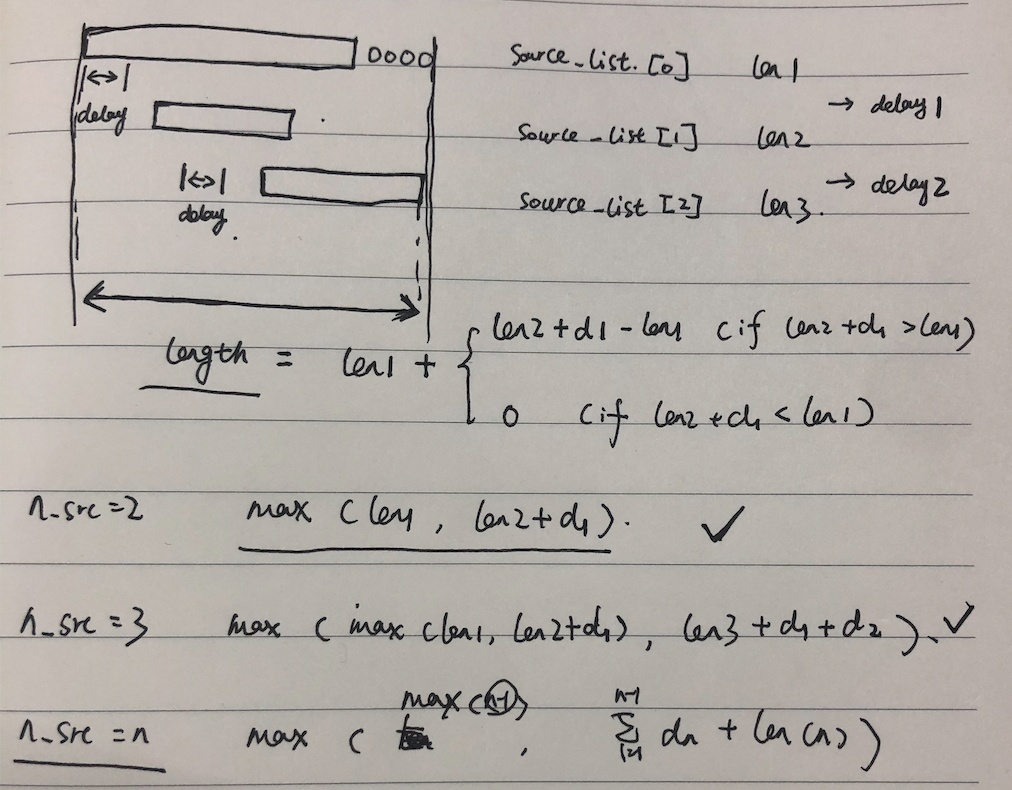 0000 Source_list.[0] len1
delay → delay1
Source_list[1] len2
→ delay2
delay. Source_list[2] len3.
length = len1 + { len2+d1-len1 (if len2+d1>len1)
0 (if len2+d1<len1)
n_src=2 max (len1, len2+d1). ✓
n_src=3 max (max(len1, len2+d1), len3+d1+d2). ✓
n_src=n max (max(n-1), \sum_{i=1}^{n-1} dn + len(n))